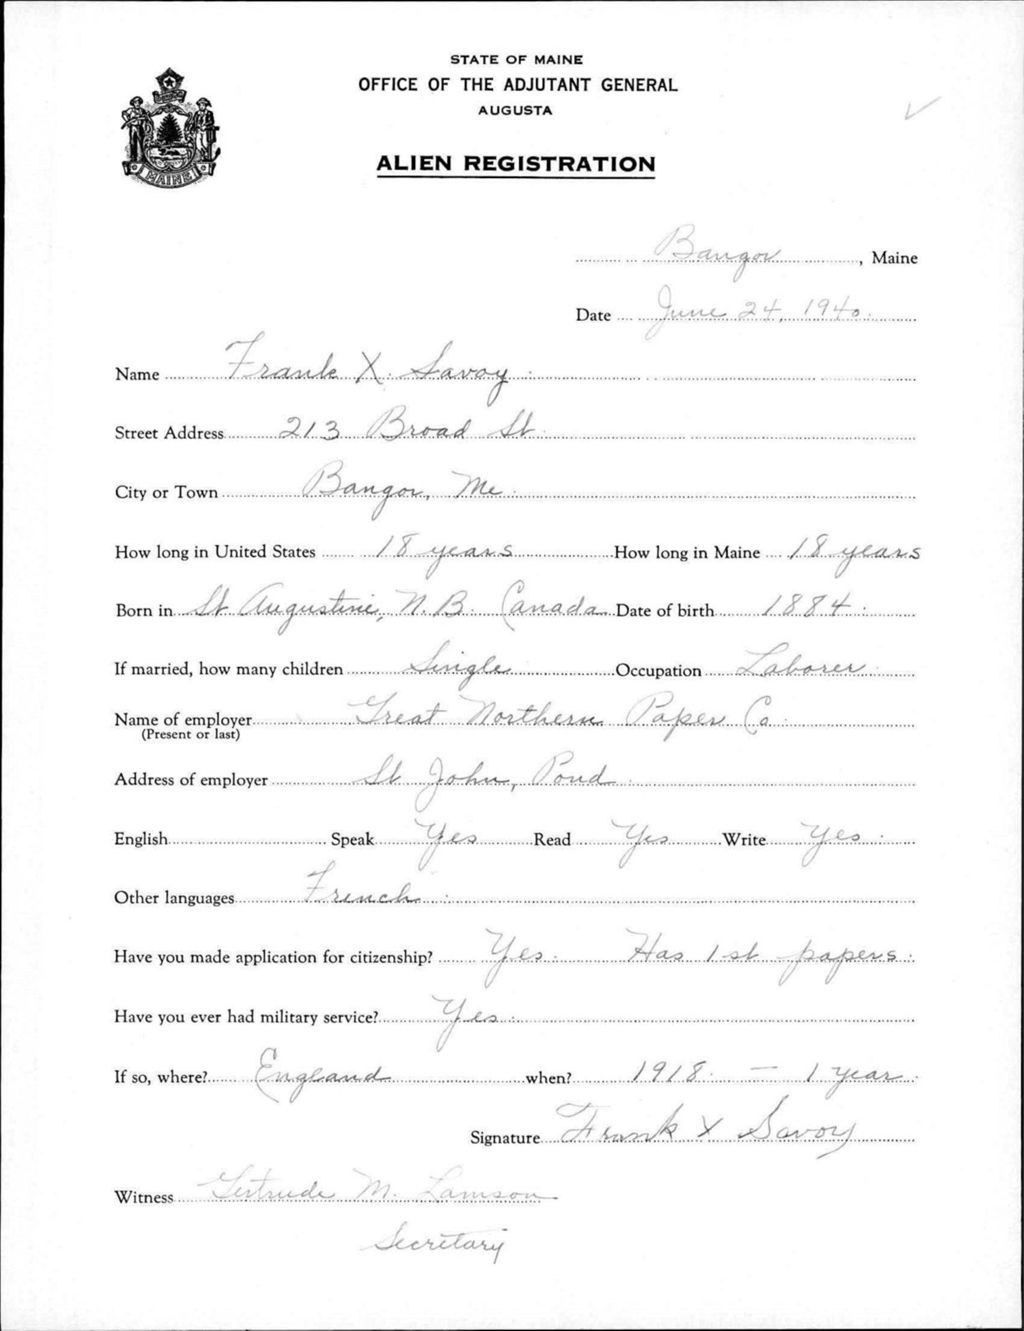 STATE OF MAINE
OFFICE OF THE ADJUTANT GENERAL
AUGUSTA
ALIEN REGISTRATION
MAINE
Bangor, Maine
Date June 24, 1940.
Name Frank X. Savoy.
Street Address 213 Broad St.
City or Town Bangor, Me.
How long in United States 18 years How long in Maine 18 years
Born in St Augustine, N.B. Canada Date of birth 1884.
If married, how many children Single Occupation Laborer.
Name of employer Great Northern Paper Co.
(Present or last)
Address of employer St John, Pond.
English Speak Yes Read Yes Write Yes.
Other languages French.
Have you made application for citizenship? Yes. Has 1st papers.
Have you ever had military service? Yes.
If so, where? England when? 1918. — 1 year.
Signature Frank X Savoy
Witness Gertrude M. Lamson
Secretary